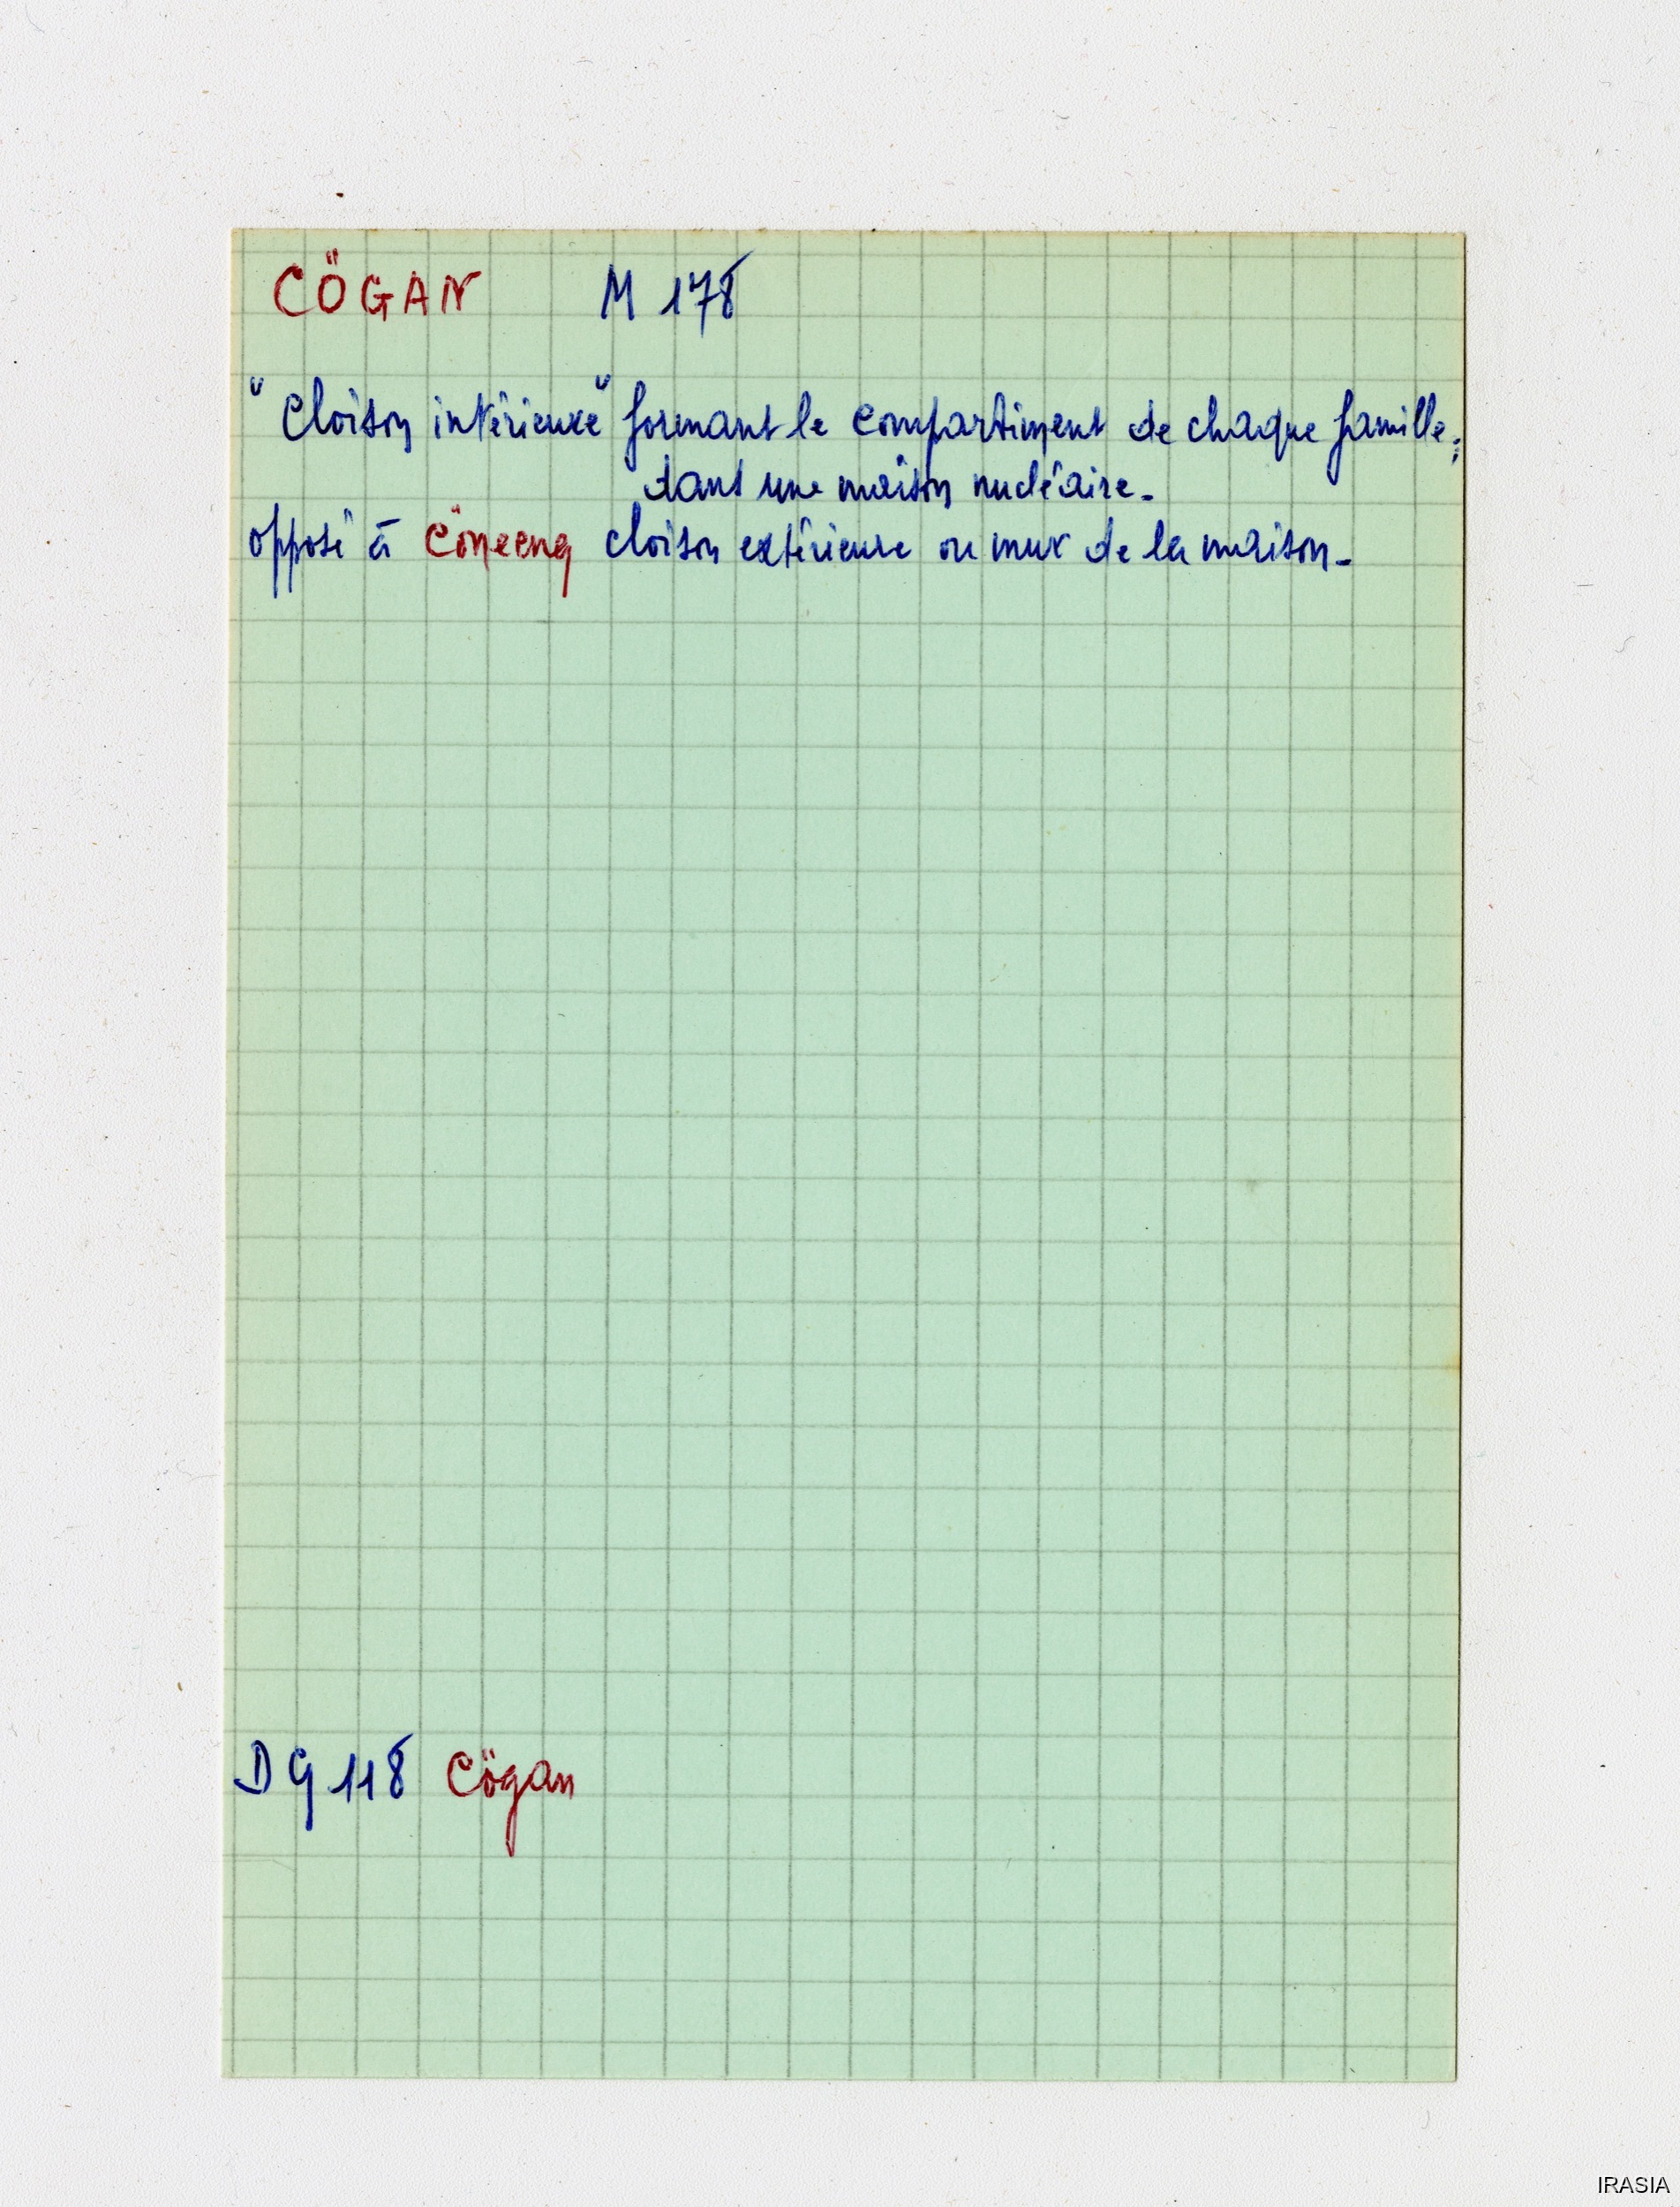 CÖGAN M 178
"Cloison intérieure" formant le compartiment de chaque famille;
dans une maison nucléaire.
opposé à cöneeng cloison extérieure ou mur de la maison.
DG 118 Cögan
IRASIA